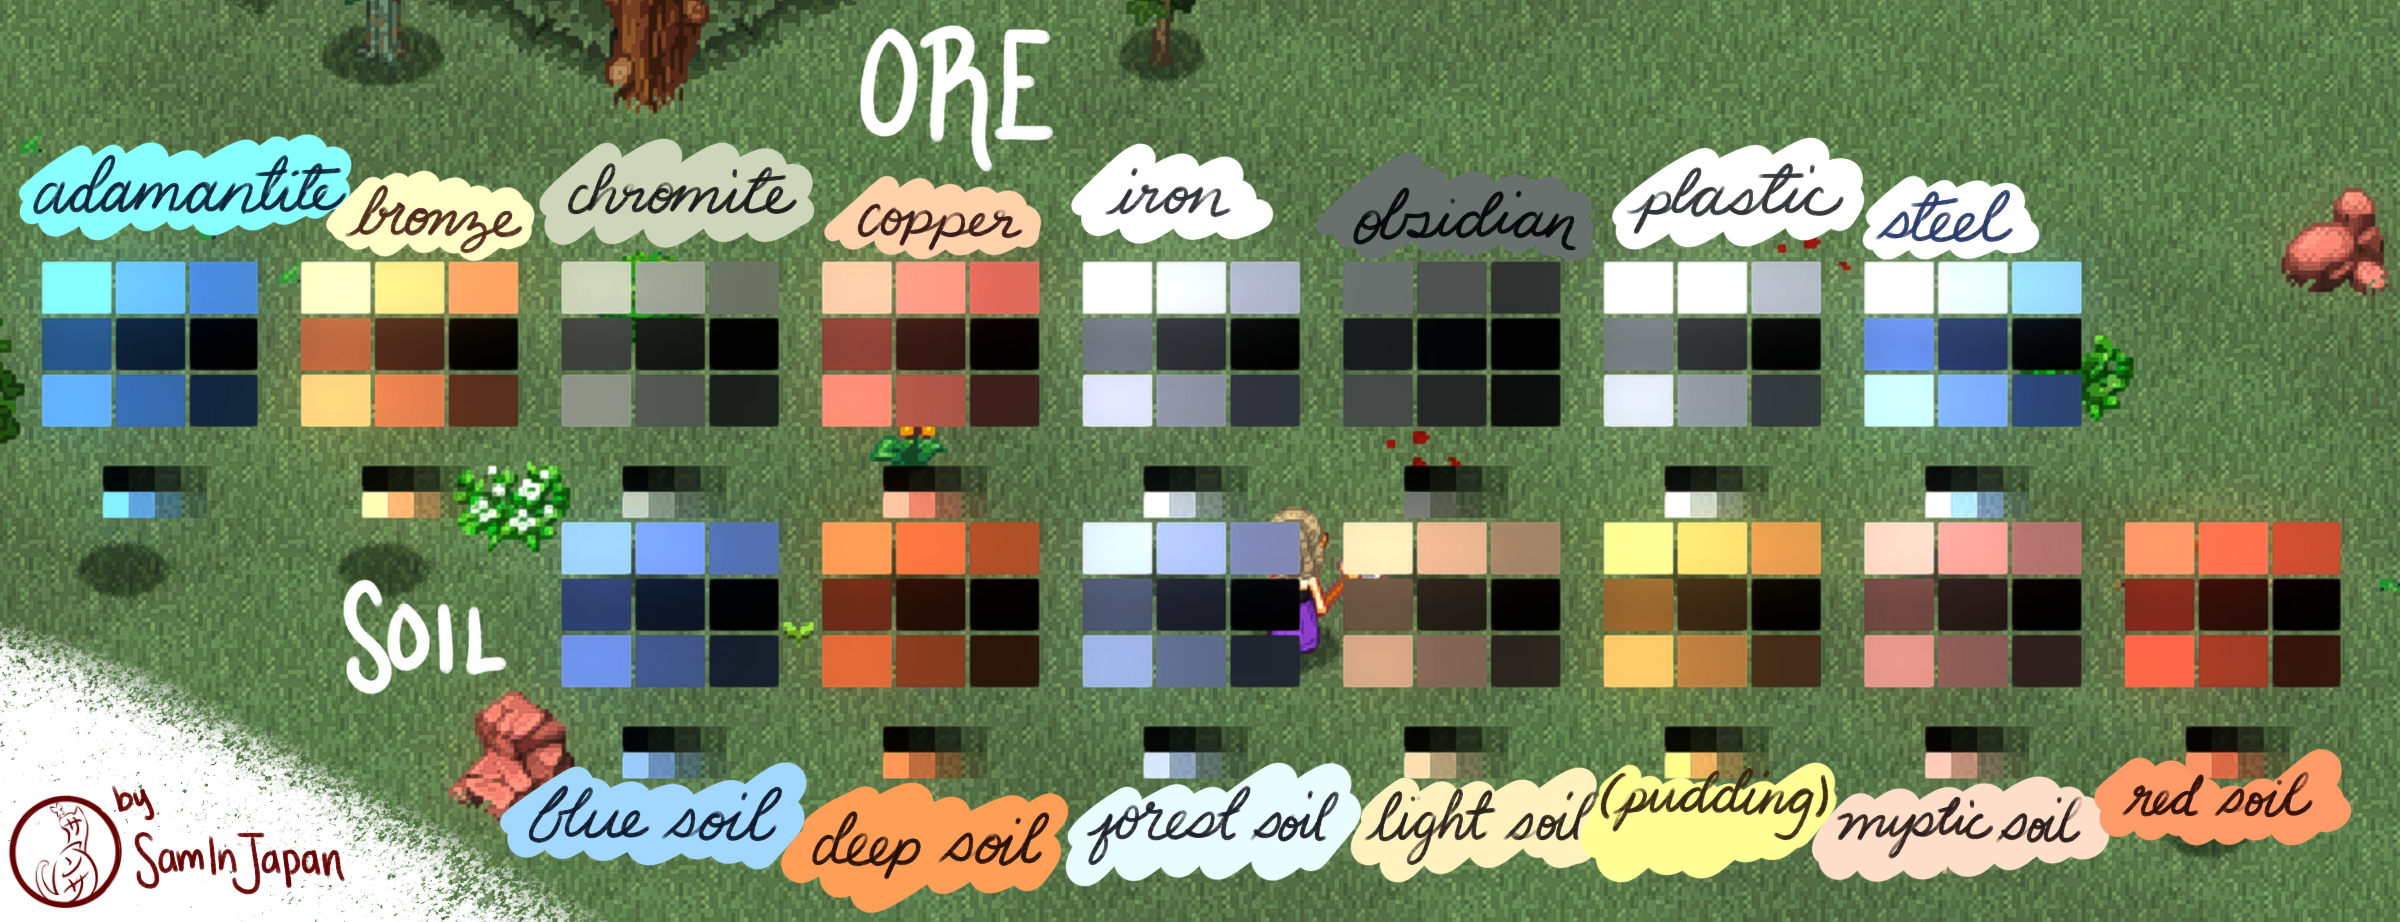 ORE
adamantite
bronze
chromite
copper
iron
obsidian
plastic
steel
SOIL
blue soil
deep soil
forest soil
light soil
(pudding)
mystic soil
red soil
by
SamInJapan
サンサン